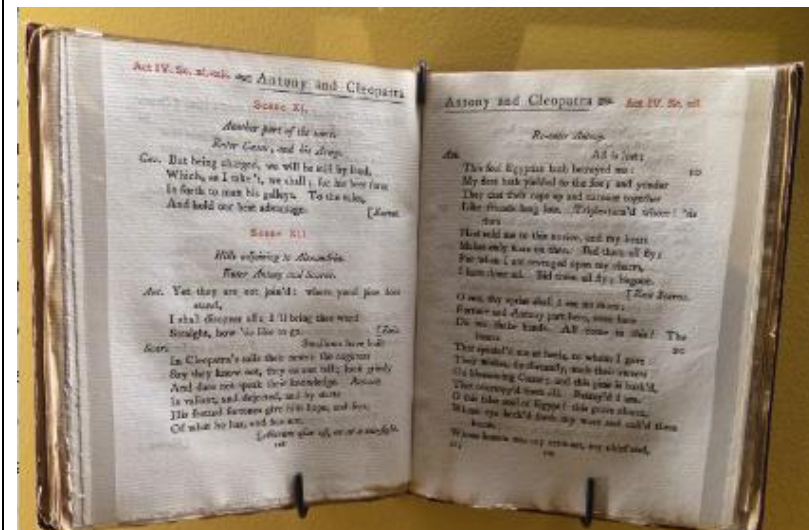 Act IV. Sc. xi.-xii. Antony and Cleopatra
Scene XI.
Another part of the same.
Enter Cæsar, and his Army.
Cæs. But being charged, we will be still by land,
Which, as I take 't, we shall; for his best force
Is forth to man his galleys. To the vales,
And hold our best advantage. [Exeunt.
Scene XII.
Hills adjoining to Alexandria.
Enter Antony and Scarus.
Ant. Yet they are not join'd: where yond pine does
stand,
I shall discover all: I 'll bring thee word
Straight, how 'tis like to go. [Exit.
Scar. Swallows have built
In Cleopatra's sails their nests: the
Say they know not, they cannot tell; look grimly
And dare not speak their knowledge. Antony
Is valiant, and dejected, and by starts
His fretted fortunes give him hope, and fear,
Of what he has, and has not.
[Alarum afar off, as at a sea-fight.
Antony and Cleopatra Act IV. Sc. xii.
Re-enter Antony.
Ant. All is lost; 10
This foul Egyptian hath betrayed me:
My fleet hath yielded to the foe; and yonder
They cast their caps up and carouse together
Like friends long lost. Triple-turn'd whore! 'tis
thou
Hast sold me to this novice, and my heart
Makes only wars on thee. Bid them all fly;
For when I am revenged upon my charm,
I have done all. Bid them all fly; begone.
[Exit Scarus.
O sun, thy uprise shall I see no more:
Fortune and Antony part here, even here
Do we shake hands. All come to this? The
hearts 20
That spaniel'd me at heels, to whom I gave
Their wishes, do discandy, melt their sweets
On blossoming Cæsar; and this pine is bark'd,
That overtopp'd them all. Betray'd I am.
O this false soul of Egypt! this grave charm,
Whose eye beck'd forth my wars and call'd them
home,
Whose bosom was my crownet, my chief end,